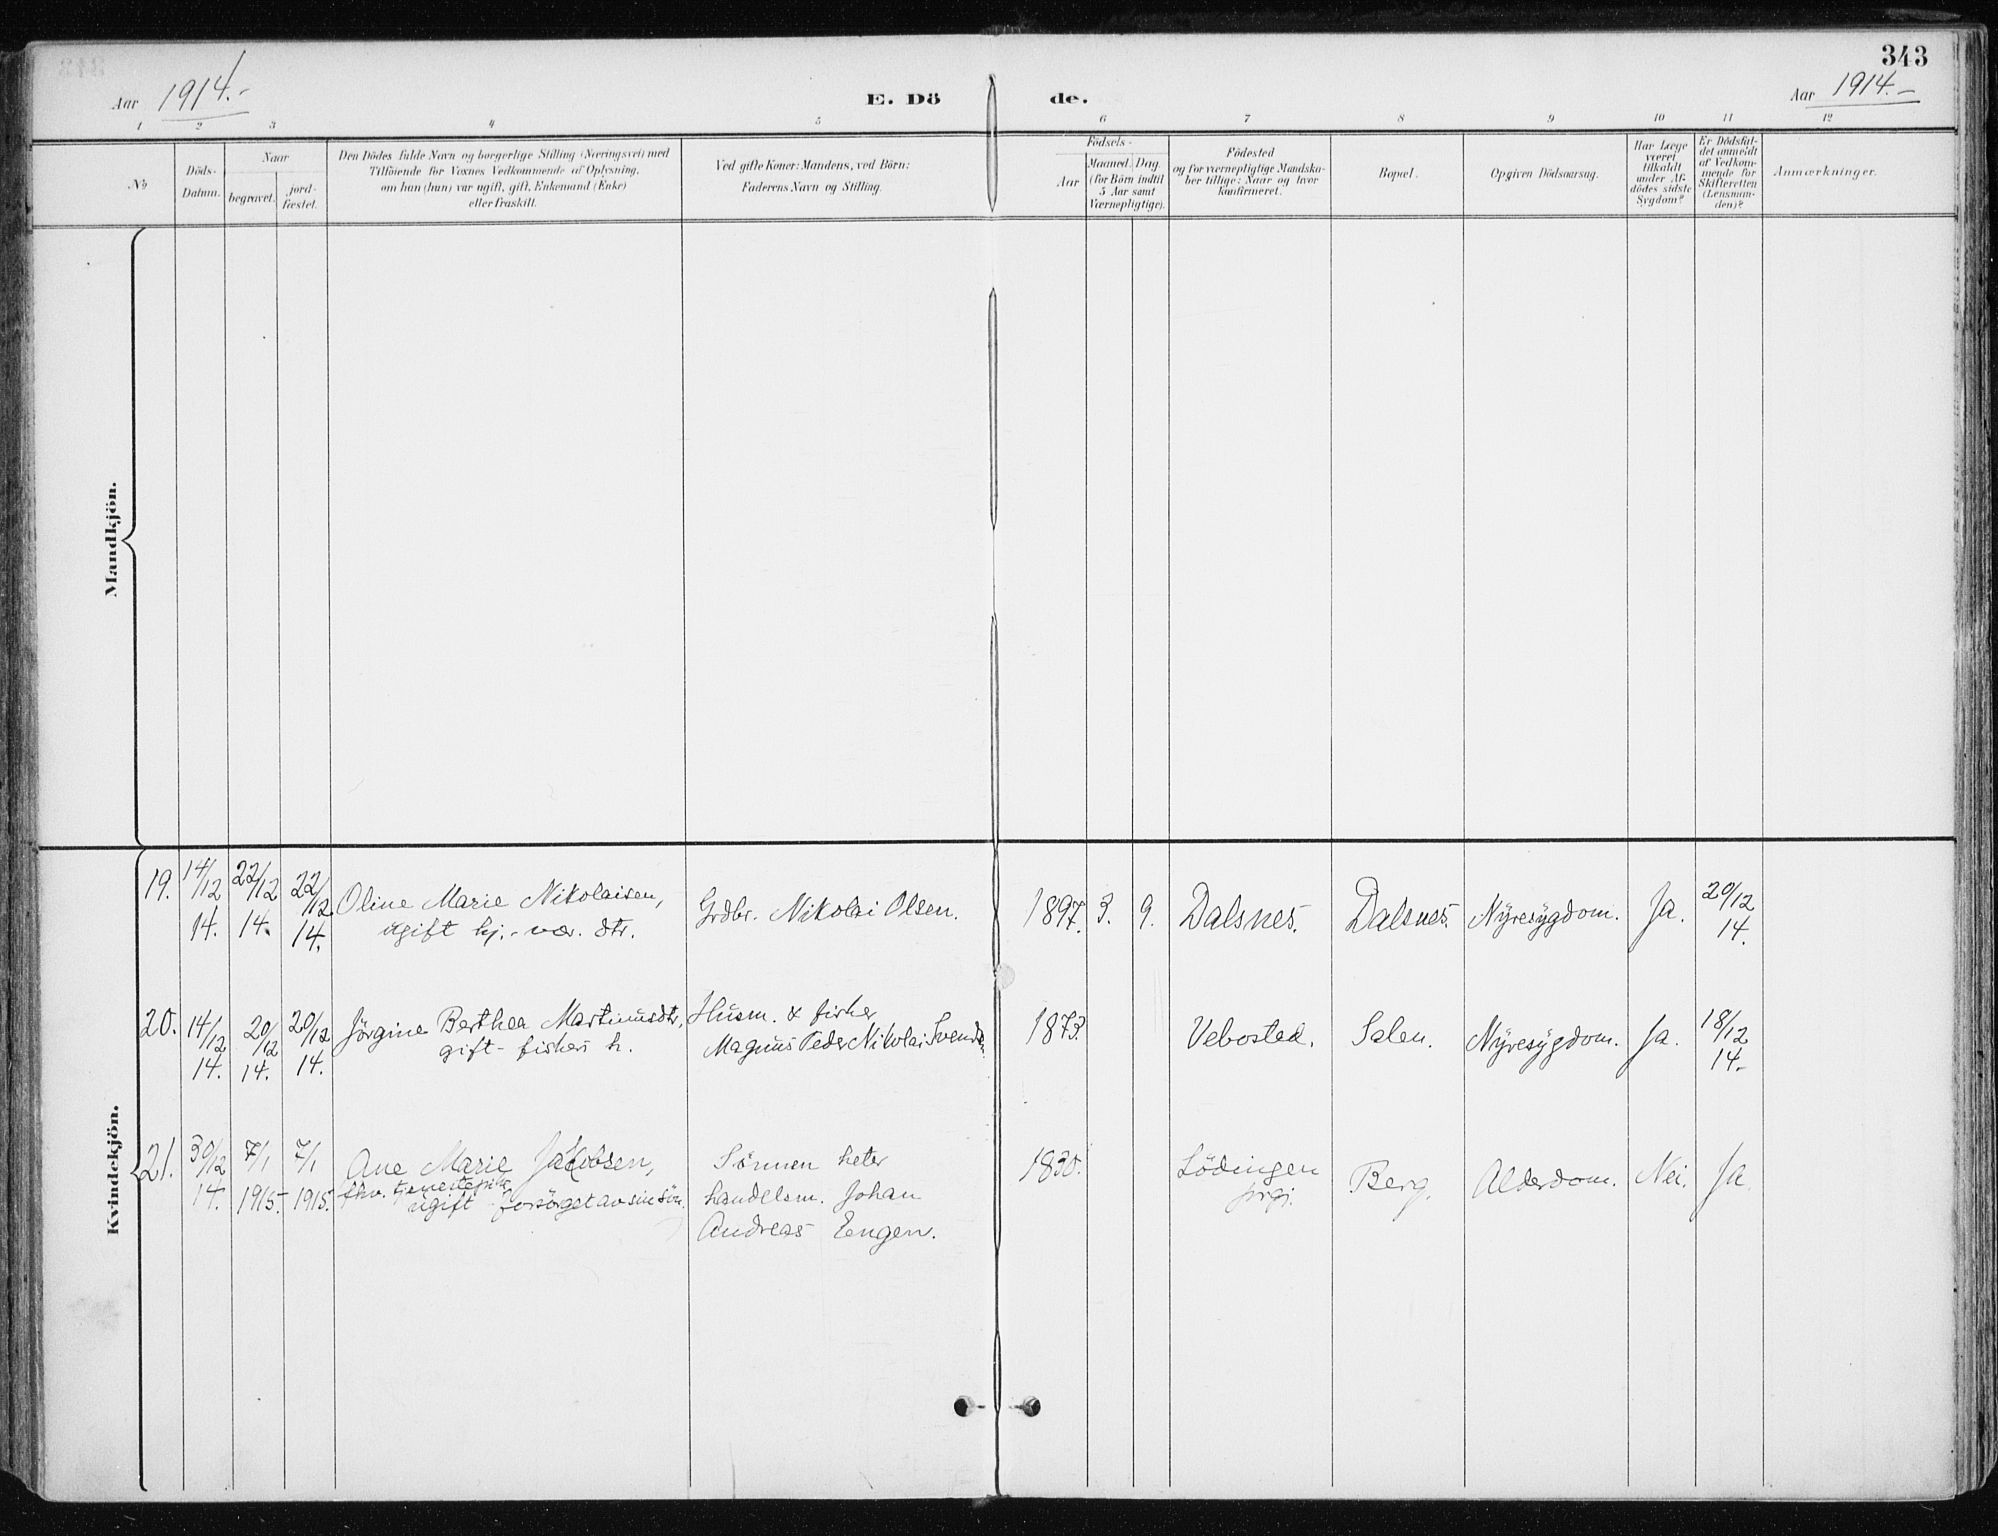 343
Aar 1914.-
E. Dö de.
Aar 1914.-
1 2 3 4 5 6 7 8 9 10 11 12
No
Döds-Datum.
Naar
begravet.
jord-fæstet.
Den Dödes fulde Navn og borgerlige Stilling (Næringsvei) med
Tilföiende for Voxnes Vedkommende af Oplysning,
om han (hun) var ugift, gift, Enkemand (Enke)
eller fraskilt.
Ved gifte Koner: Mandens, ved Börn:
Faderens Navn og Stilling.
Födsels-
Aar
Maaned. Dag.
(for Börn indtil
5 Aar samt
Værnepligtige).
Födested
og for værnepligtige Mandska-
ber tillige: Naar og hvor
konfirmeret.
Bopæl.
Opgiven Dödsaarsag.
Har Læge
været
tilkaldt
under Af-
dödes sidste
Sygdom?
Er Dödsfal-
det anmeldt
af Vedkom-
mende for
Skifteretten
(Lensman-
den)?
Anmærkninger.
Mandkjön.
Kvindekjön.
19. 14/12 14. 22/12 14. 22/12 14.
Oline Marie Nikolaisen,
ugift hj.-vær. dtr.
Grdbr. Nikolai Olsen.
1897. 3. 9. Dalsnes. Dalsnes. Nyresygdom. Ja. 20/12 14.
20. 14/12 14. 20/12 14. 20/12 14.
Jörgine Berthea Martinusdtr,
gift - fiskers h.
Husm. & fisker
Magnus Peder Nikolai Svends.
1873. Vebostad. Salen. Nyresygdom. Ja. 18/12 14.-
21. 30/12 14. 7/1 1915. 7/1 1915.
Ane Marie Jakobsen,
fhv. tjenestepike
ugift forsörget av sin sön.
Sönnen heter
handelsm. Johan
Andreas Engen.
1830. Lödingen
prgj.
Berg. Alderdom. Nei. Ja.